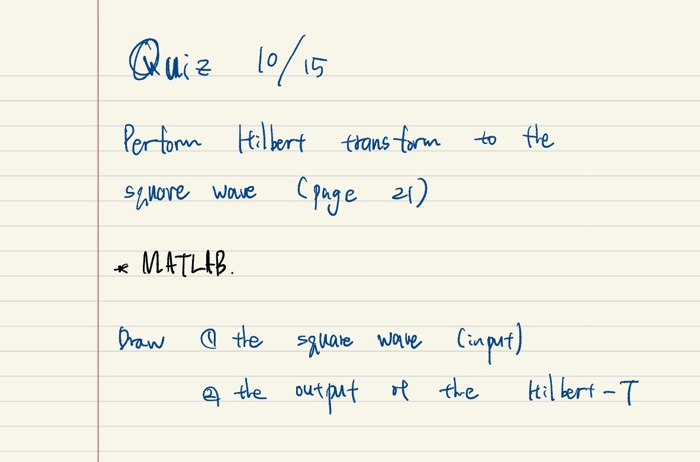 Quiz 10/15
Perform Hilbert transform to the
square wave (page 21)
* MATLAB.
Draw ① the square wave (input)
② the output of the Hilbert-T